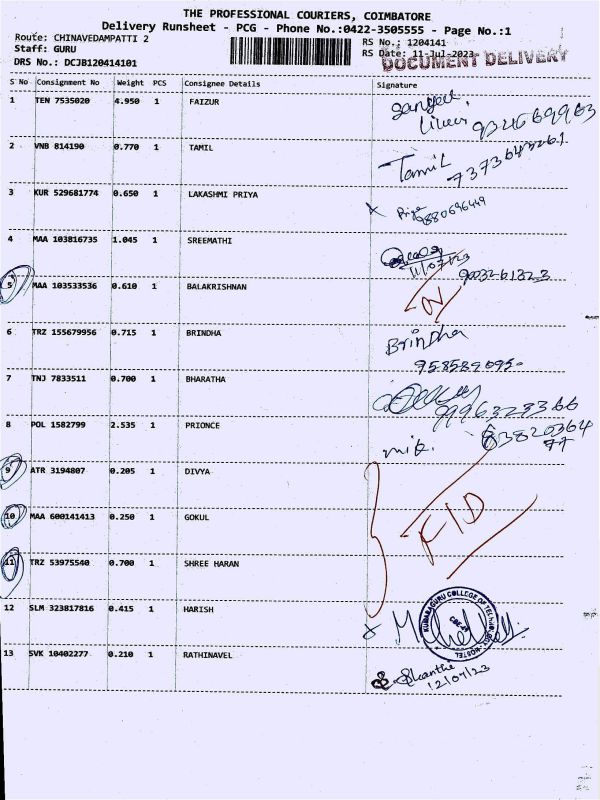 THE PROFESSIONAL COURIERS, COIMBATORE
Delivery Runsheet - PCG - Phone No.:0422-3505555 - Page No.:1
Route: CHINAVEDAMPATTI 2
RS No.: 1204141
Staff: GURU
RS Date: 11-Jul-2023
DOCUMENT DELIVERY
DRS No.: DCJB120414101
S No Consignment No Weight PCS Consignee Details Signature
1 TEN 7535020 4.950 1 FAIZUR
2 VNB 814190 0.770 1 TAMIL Tamil
3 KUR 529681774 0.650 1 LAKASHMI PRIYA Priya
9880696449
4 MAA 103816735 1.045 1 SREEMATHI
11/07/23
9003261323
5 MAA 103533536 0.610 1 BALAKRISHNAN
6 TRZ 155679956 0.715 1 BRINDHA Brindha
7 TNJ 7833511 0.700 1 BHARATHA
8 POL 1582799 2.535 1 PRIONCE
9 ATR 3194807 0.205 1 DIVYA
10 MAA 600141413 0.250 1 GOKUL
F/D
11 TRZ 53975540 0.700 1 SHREE HARAN
12 SLM 323817816 0.415 1 HARISH
KUMARAGURU COLLEGE OF TECHNOLOGY HOSTEL
13 SVK 10402277 0.210 1 RATHINAVEL
12/07/23